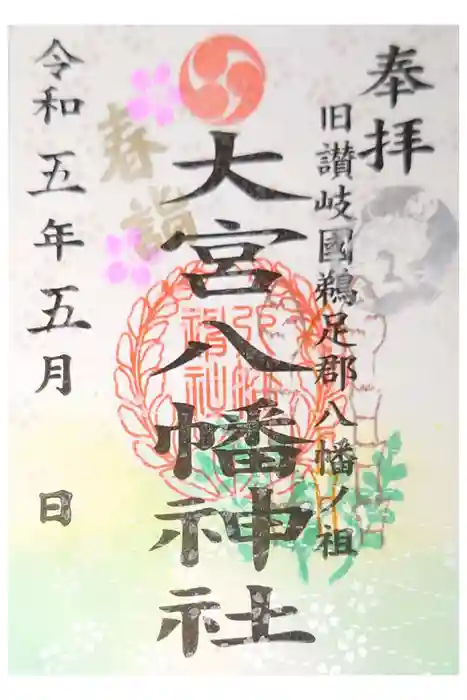 奉拝
旧讃岐國鵜足郡八幡ノ祖
大宮八幡神社
春詣
令和五年五月　日